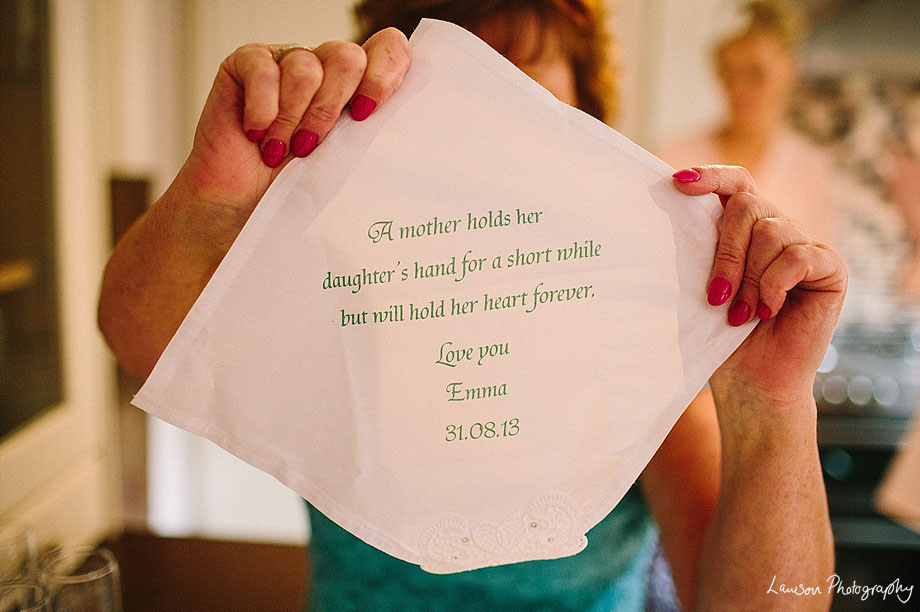 A mother holds her
daughter's hand for a short while
but will hold her heart forever.
Love you
Emma
31.08.13
Lawson Photography